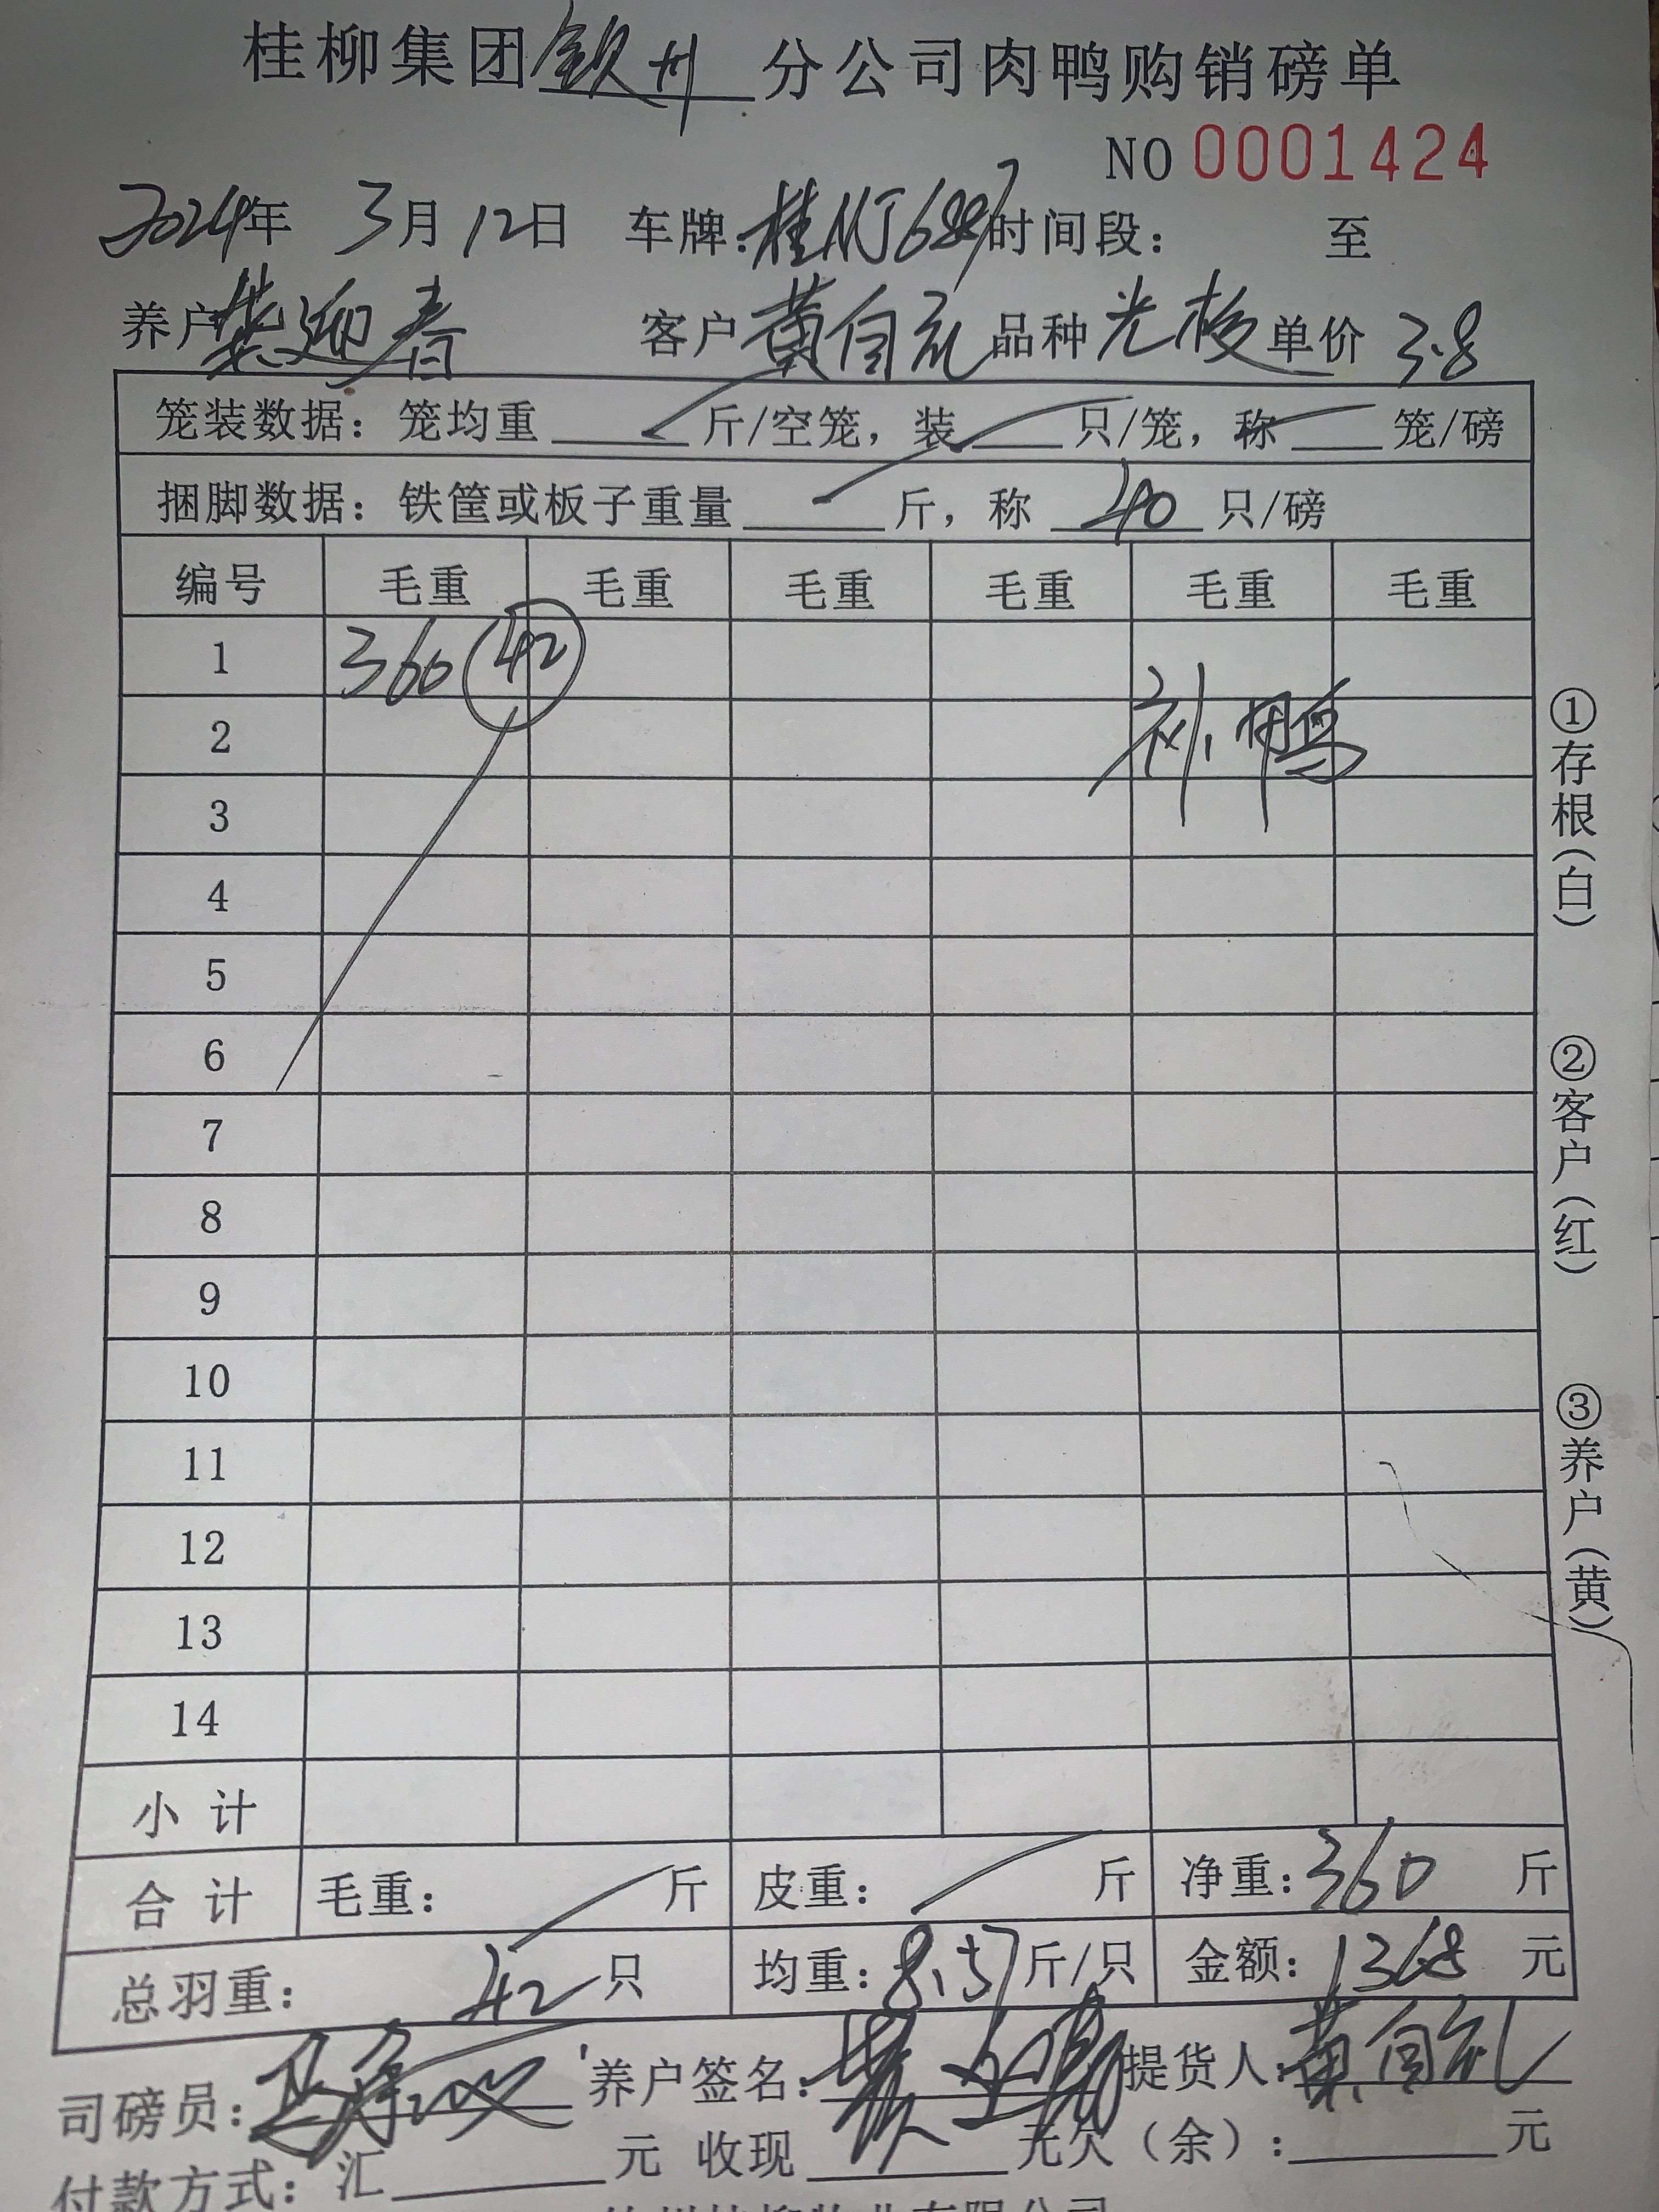 桂柳集团钦州分公司肉鸭购销磅单
NO 0001424
2024年 3月12日 车牌: 时间段: 至
养户 樊迎春 客户 黄自礼 品种 单价 3.8
笼装数据: 笼均重 斤/空笼, 装 只/笼, 称 笼/磅
捆脚数据: 铁筐或板子重量 斤, 称 40 只/磅
编号 毛重 毛重 毛重 毛重 毛重 毛重
1 360 42
2 补鸭
3
4
5
6
7
8
9
10
11
12
13
14
小计
合计 毛重: 斤 皮重: 斤 净重: 360 斤
总羽重: 42只 均重: 8.57斤/只 金额: 1368 元
司磅员: 养户签名: 提货人: 黄自礼
付款方式: 汇 元 收现 元欠(余): 元
①存根(白) ②客户(红) ③养户(黄)